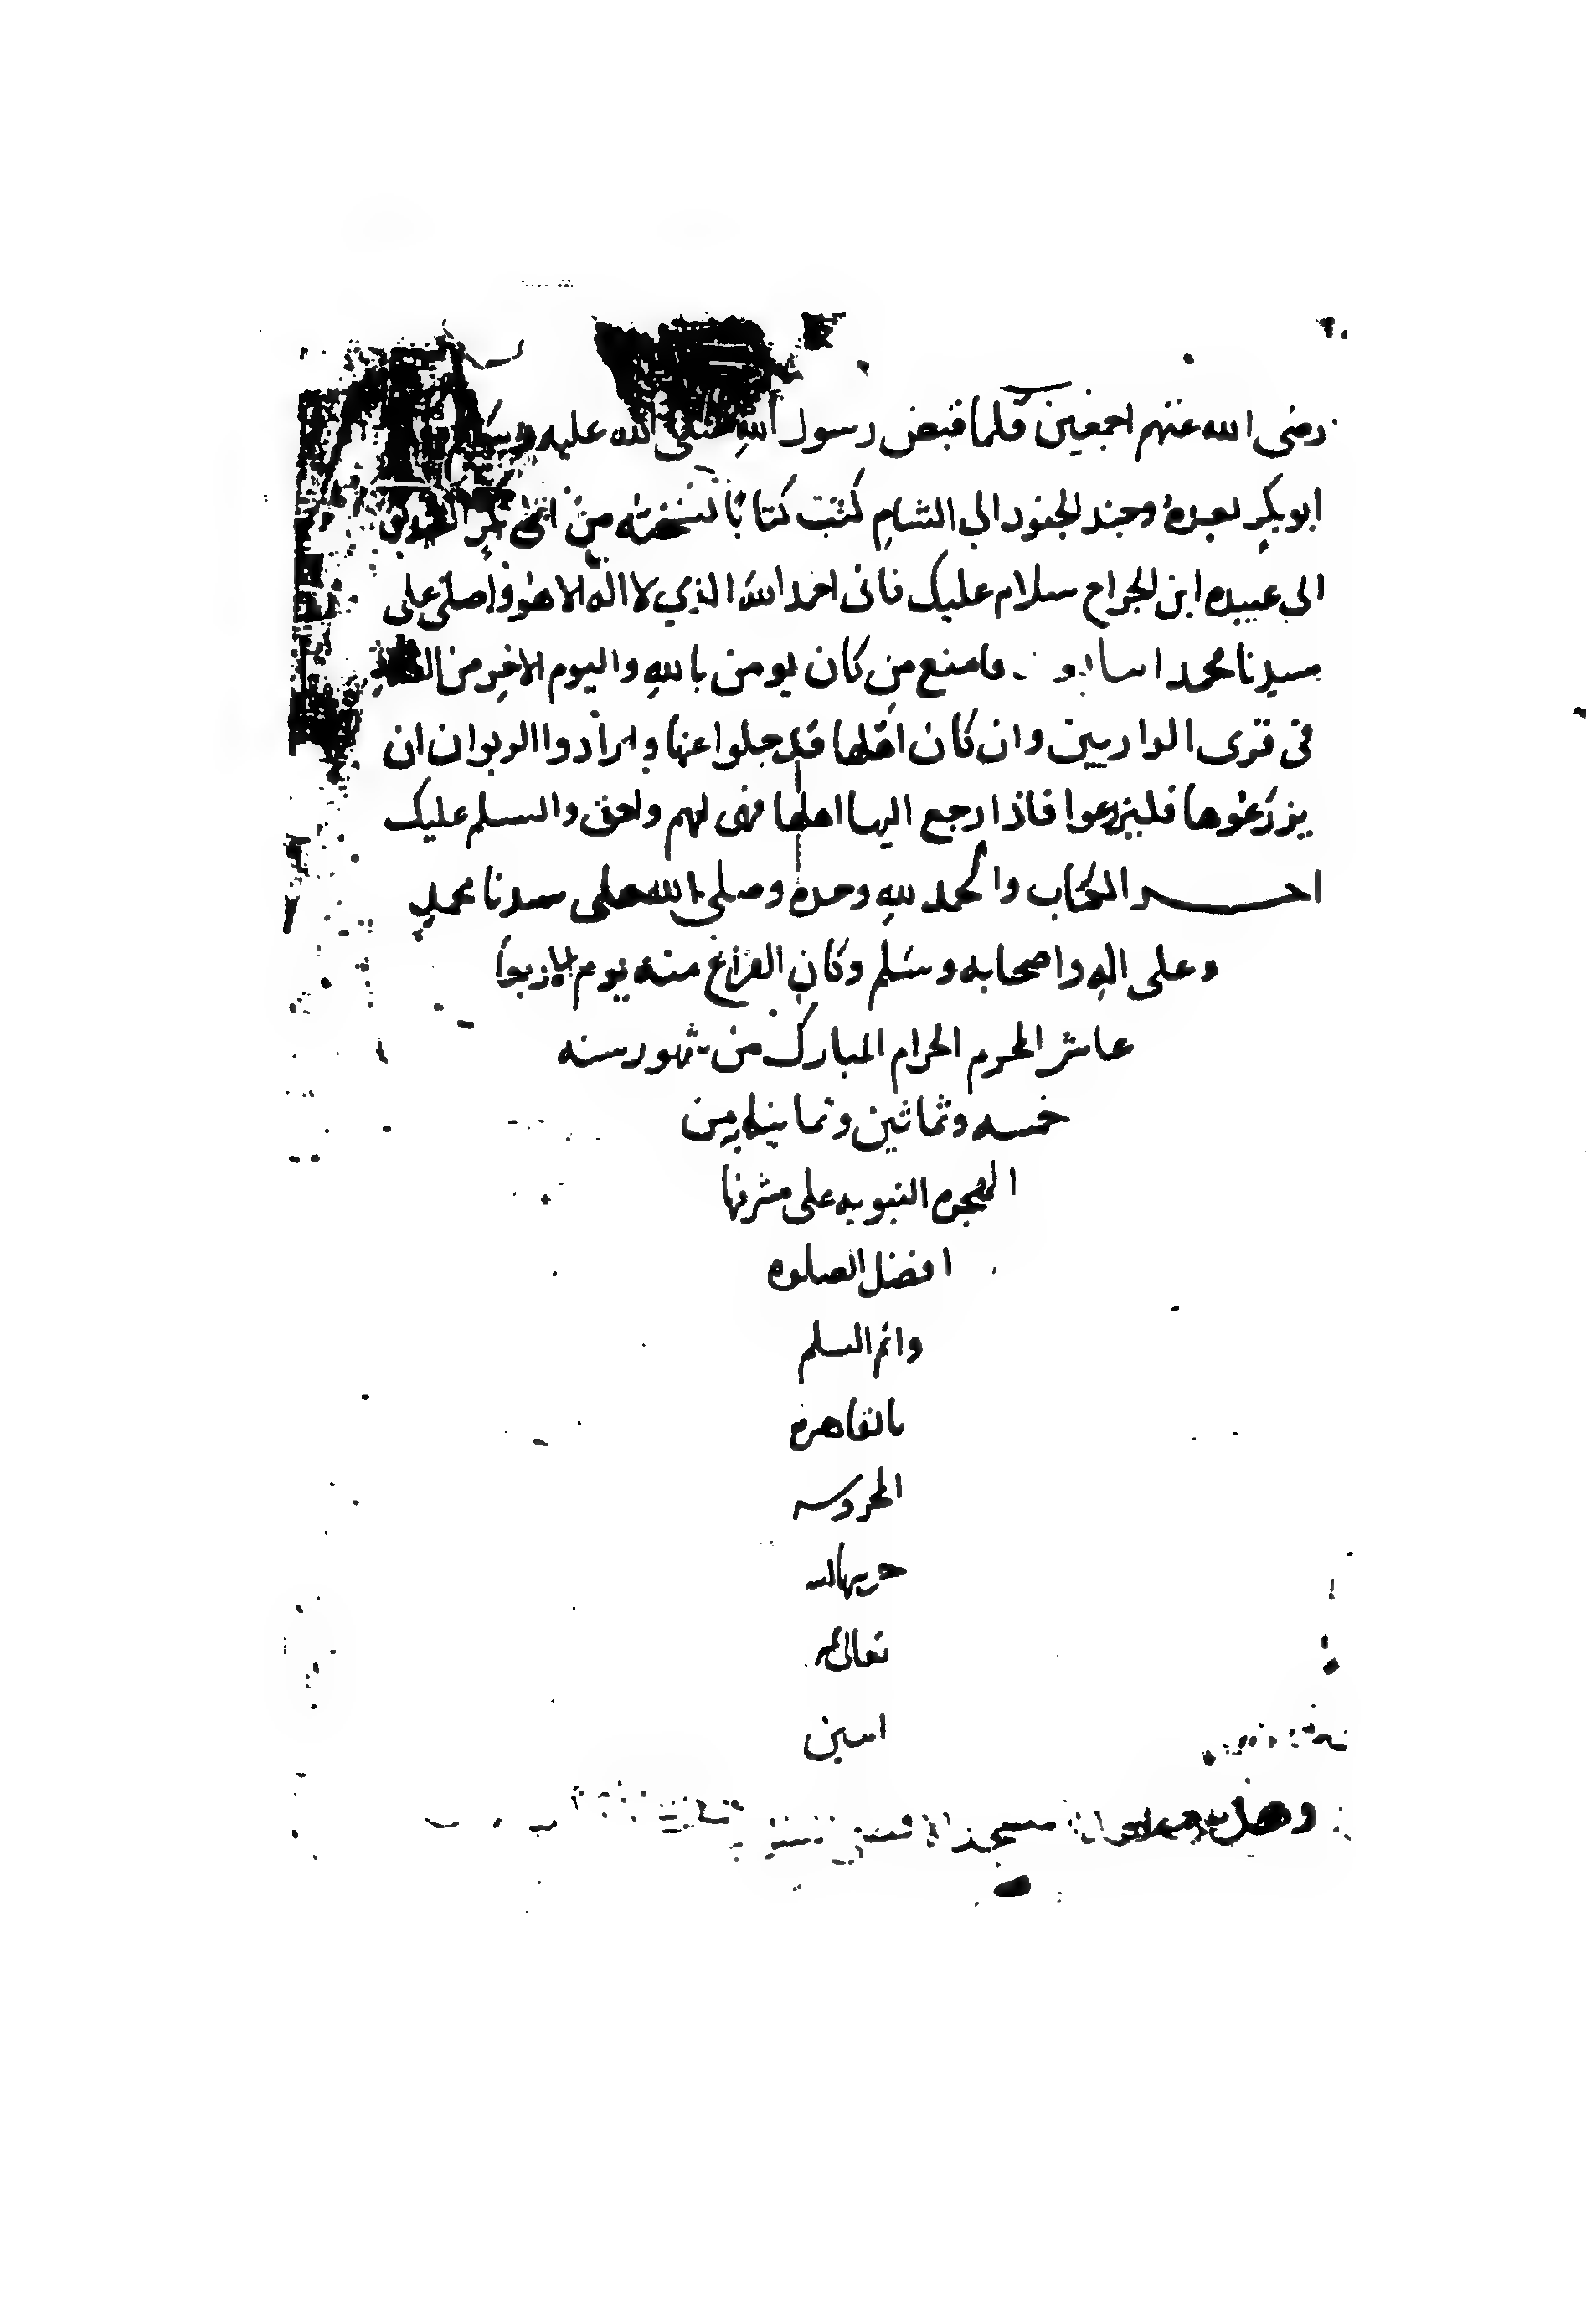 رضى الله عنهم اجمعين فلما قبض رسول الله صلى الله عليه وسلم
ابو بكرٍ بعده وجند الجنود الي الشامِ كتب كتابًا نسخته من ابى بكر الصديق
الى عبيده ابن الجراح سلام عليك فانى احمد الله الذي لا اله الا هو واصلى على
سيدنا محمد فامنع من كان يومن باللهِ واليوم الاخرِ من
فى قرى الداريين وان كان اهلها قد جلوا عنها وارادوا الداريون ان
يزرعوها فليزرعوا فاذا رجع اليها اهلها فهى لهم واحق والسلم عليك
اخر الكتاب والحمد للهِ وحده وصلى الله على سيدنا محمدٍ
وعلى الهِ واصحابه وسلم وكان الفراغ منه يوم
عاشر المحرم الحرام المبارك من شهور سنه
خمسه وثمانين وثمانمايه من
الهجره النبويه على مشرفها
افضل الصلوه
واتم السلم
بالقاهره
المحروسه
حرسها الله
تعالى
امين